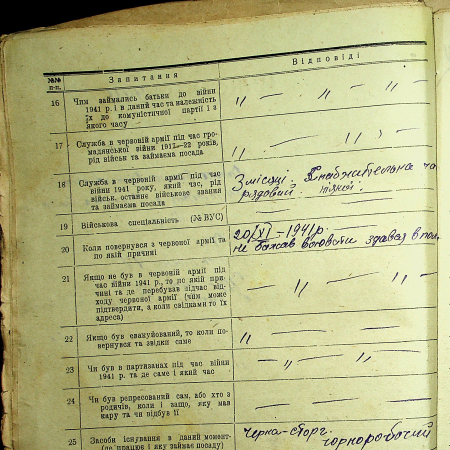 №№
п-п.
Запитання
Відповіді
16
Чим займались батьки до війни
1941 р. і в даний час та належність
їх до комуністичної партії і з
якого часу
17
Служба в червоній армії під час гро-
мадянської війни 1917—22 років,
рід військ та займаєма посада
18
Служба в червоній армії під час
війни 1941 року, який час, рід
військ, останнє військове звання
та займаєма посада
З місяці.
рядовий.
19
Військова спеціальність (№ ВУС)
20
Коли повернувся з червоної армії та
по якій причині
20/XI - 1941 р.
не бажав воювати здався в пол.
21
Якщо не був в червоній армії під
час війни 1941 р., то по якій при-
чині та де перебував підчас від-
ходу червоної армії (чим може
підтвердити, а коли свідками то їх
адреса)
22
Якщо був евакуйований, то коли по-
вернувся та звідки саме
23
Чи був в партизанах під час війни
1941 р. та де саме і який час
24
Чи був репресований сам, або хто з
родичів, коли і защо, яку мав
кару та чи відбув її
25
Засоби існування в даний момент-
(де працює і яку займає посаду)
чорноробочий